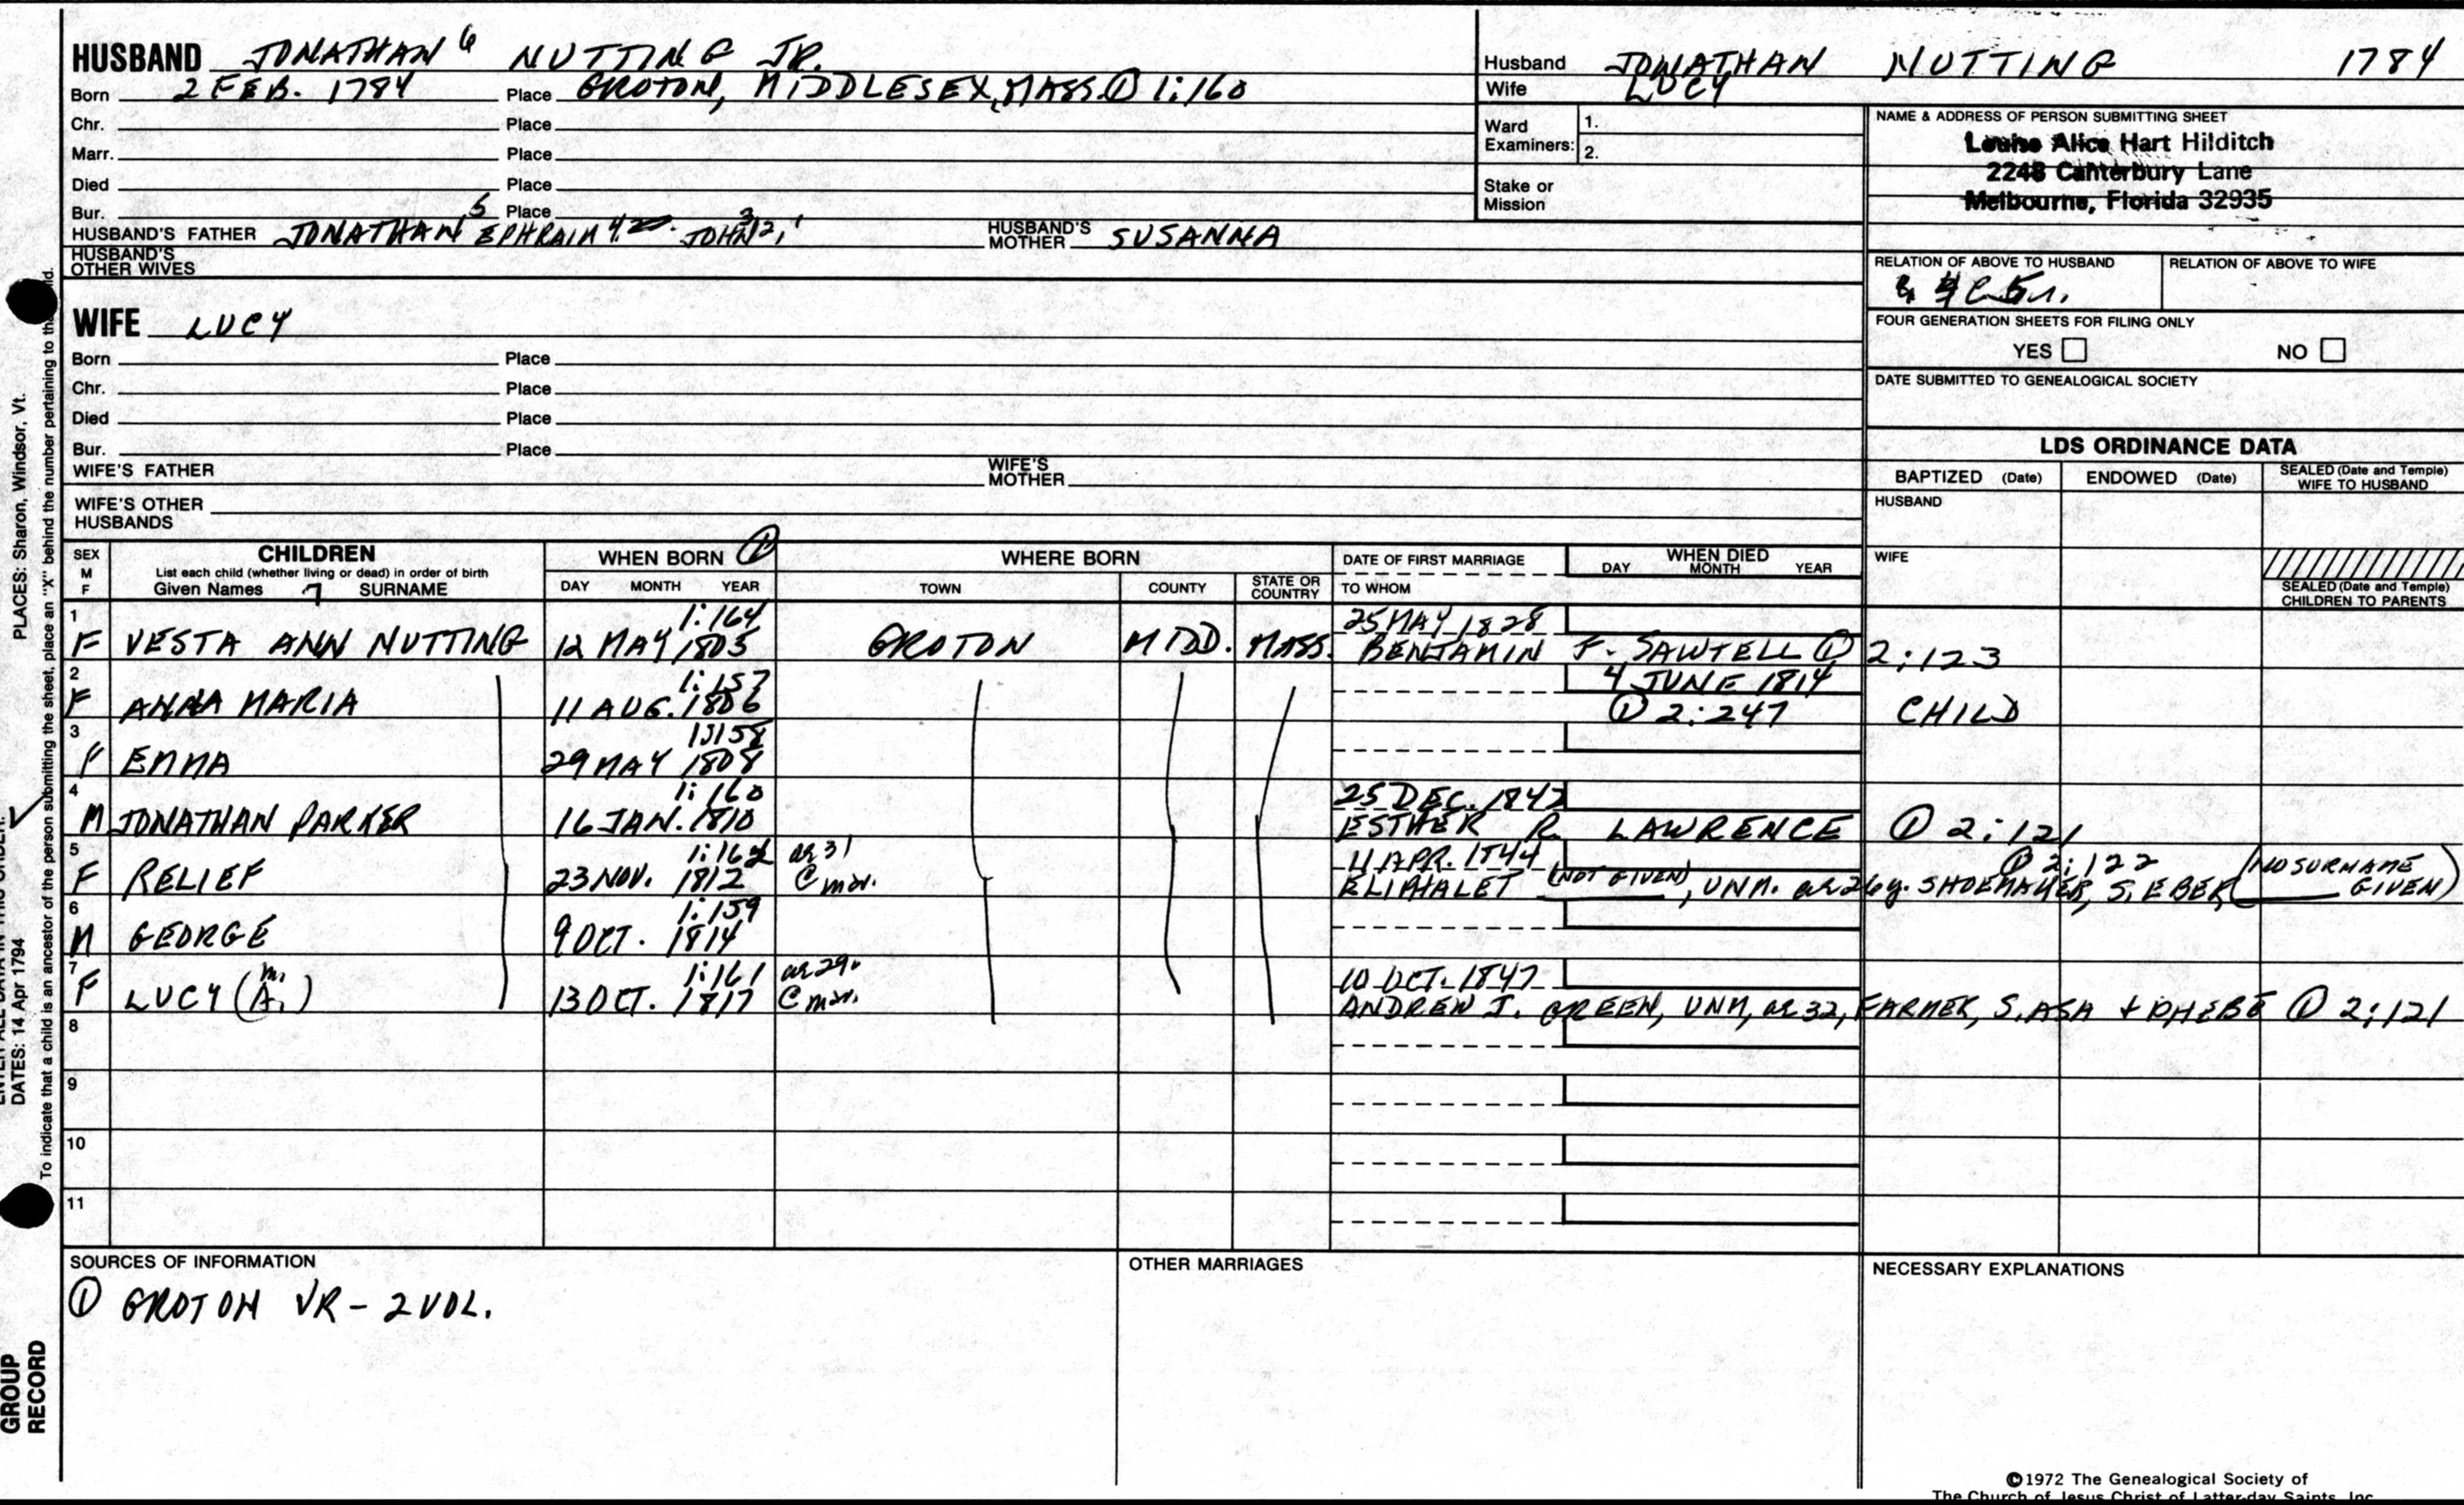 HUSBAND JONATHAN 6 NUTTING JR.
Born 2 FEB. 1784 Place GROTON, MIDDLESEX, MASS. ① 1:160
Chr. Place
Marr. Place
Died Place
Bur. Place
HUSBAND'S FATHER JONATHAN 5 EPHRAIM 4, JOHN 3 2, 1 HUSBAND'S MOTHER SUSANNA
HUSBAND'S OTHER WIVES
WIFE LUCY
Born Place
Chr. Place
Died Place
Bur. Place
WIFE'S FATHER WIFE'S MOTHER
WIFE'S OTHER HUSBANDS
Husband JONATHAN NUTTING 1784
Wife LUCY
Ward Examiners: 1.
2.
Stake or Mission
NAME & ADDRESS OF PERSON SUBMITTING SHEET
Louise Alice Hart Hilditch
2248 Canterbury Lane
Melbourne, Florida 32935
RELATION OF ABOVE TO HUSBAND RELATION OF ABOVE TO WIFE
FOUR GENERATION SHEETS FOR FILING ONLY
YES NO
DATE SUBMITTED TO GENEALOGICAL SOCIETY
LDS ORDINANCE DATA
BAPTIZED (Date) ENDOWED (Date) SEALED (Date and Temple) WIFE TO HUSBAND
HUSBAND
WIFE
SEALED (Date and Temple) CHILDREN TO PARENTS
SEX M F CHILDREN WHEN BORN ① WHERE BORN DATE OF FIRST MARRIAGE WHEN DIED
List each child (whether living or dead) in order of birth
Given Names SURNAME DAY MONTH YEAR TOWN COUNTY STATE OR COUNTRY TO WHOM DAY MONTH YEAR
1 1:164 25 MAY 1828
F VESTA ANN NUTTING 12 MAY 1805 GROTON MIDD. MASS. BENJAMIN F. SAWTELL ① 2:123
2 1:157 4 JUNE 1814
F ANNA MARIA 11 AUG. 1806 ① 2:247 CHILD
3 1:158
F EMMA 29 MAY 1808
4 1:160 25 DEC. 1843
M JONATHAN PARKER 16 JAN. 1810 ESTHER R. LAWRENCE ① 2:121
5 1:162 ae 31 11 APR. 1844 ① 2:122 (NO SURNAME
F RELIEF 23 NOV. 1812 @ mar. ELIPHALET (NOT GIVEN), UNM. ae 26 y. SHOEMAKER, S. EBER GIVEN)
6 1:159
M GEORGE 9 OCT. 1814
7 m. 1:161 ae 29. 10 OCT. 1847
F LUCY (A.) 13 OCT. 1817 @ mar. ANDREW J. GREEN, UNM, ae 32, FARMER, S. ASA + PHEBE ① 2:121
8
9
10
11
SOURCES OF INFORMATION
① GROTON VR - 2 VOL.
OTHER MARRIAGES
NECESSARY EXPLANATIONS
©1972 The Genealogical Society of
The Church of Jesus Christ of Latter-day Saints, Inc.
PLACES: Sharon, Windsor, Vt.
DATES: 14 Apr 1794
To indicate that a child is an ancestor of the person submitting the sheet, place an "X" behind the number pertaining to that child.
GROUP
RECORD